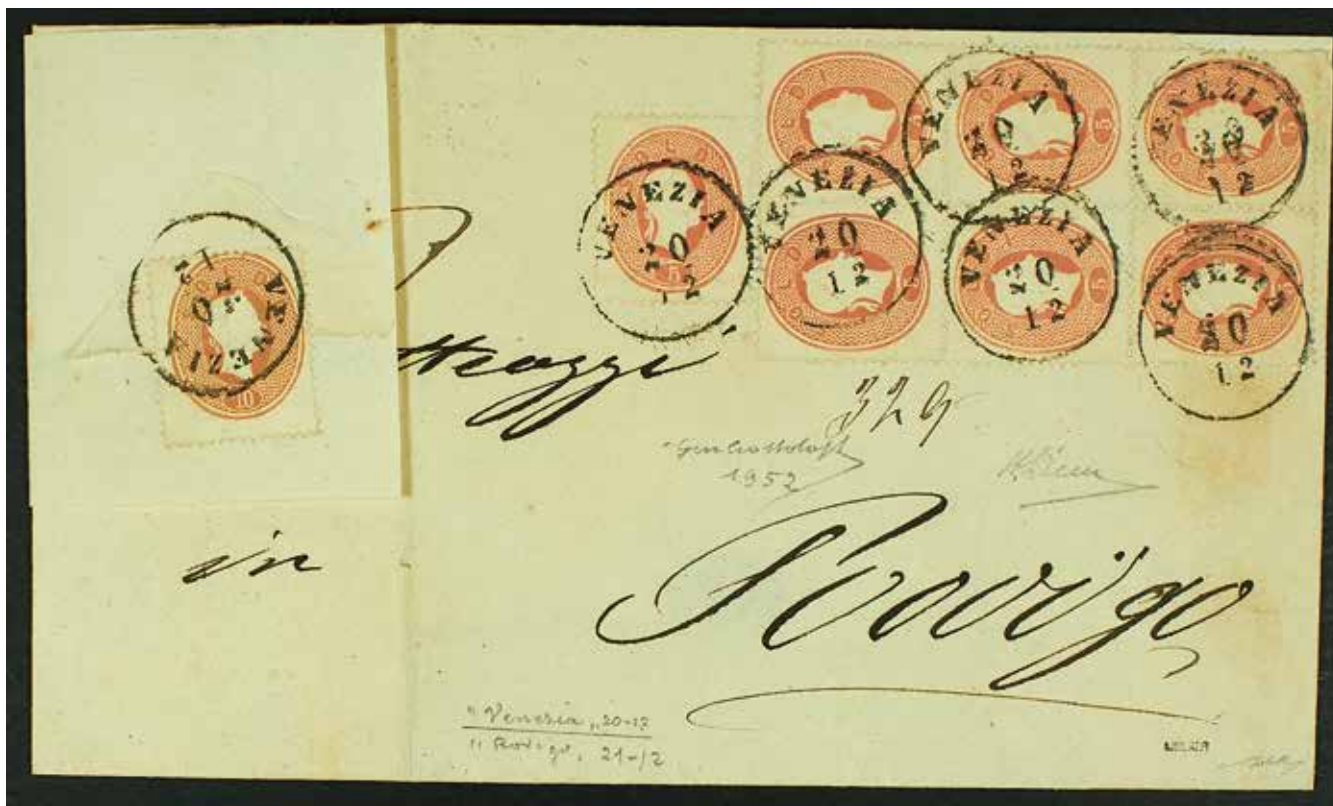 VENEZIA
20
12
VENEZIA
20
12
VENEZIA
20
12
VENEZIA
20
12
VENEZIA
20
12
VENEZIA
20
12
VENEZIA
20
12
10
SOLDI
5
329
1952
in
Rovigo
"Venezia, 20-12
" Rovigo, 21-12